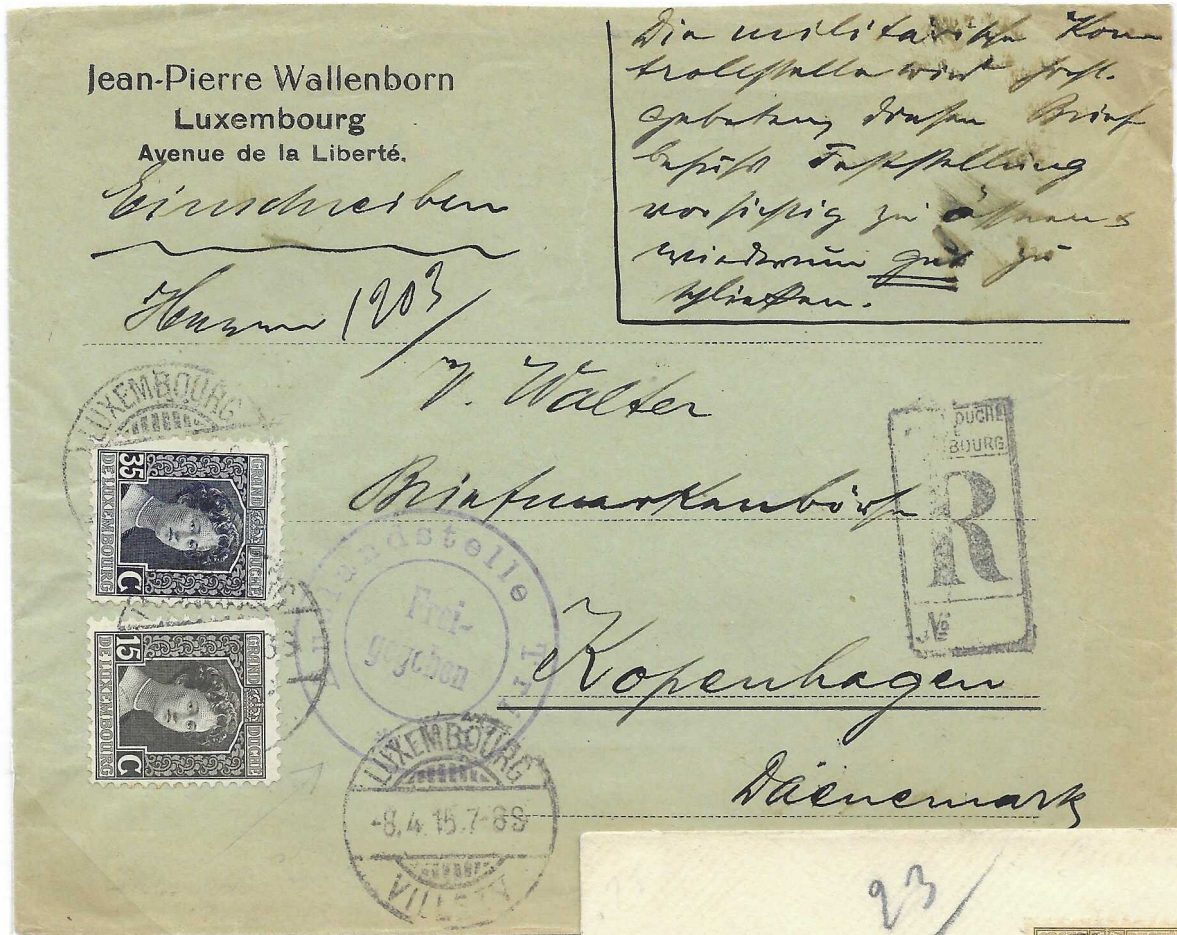 Jean-Pierre Wallenborn
Luxembourg
Avenue de la Liberté.
Einschreiben
Die militärische Kon
trollstelle wird höfl.
gebeten, diesen Brief
behufs Feststellung
vorsichtig zu öffnen &
wiederum gut zu
schließen.
Herrn
1203
V. Walter
Briefmarkenbörse
Kopenhagen
Däenemark
LUXEMBOURG
35
C
GRAND DUCHÉ
DE LUXEMBOURG
15
C
GRAND DUCHÉ
DE LUXEMBOURG
Auslandstelle Trier
Frei-
gegeben
DUCHÉ
BOURG
R
No
LUXEMBOURG
-8.4.15.7-8S
VILLE
23